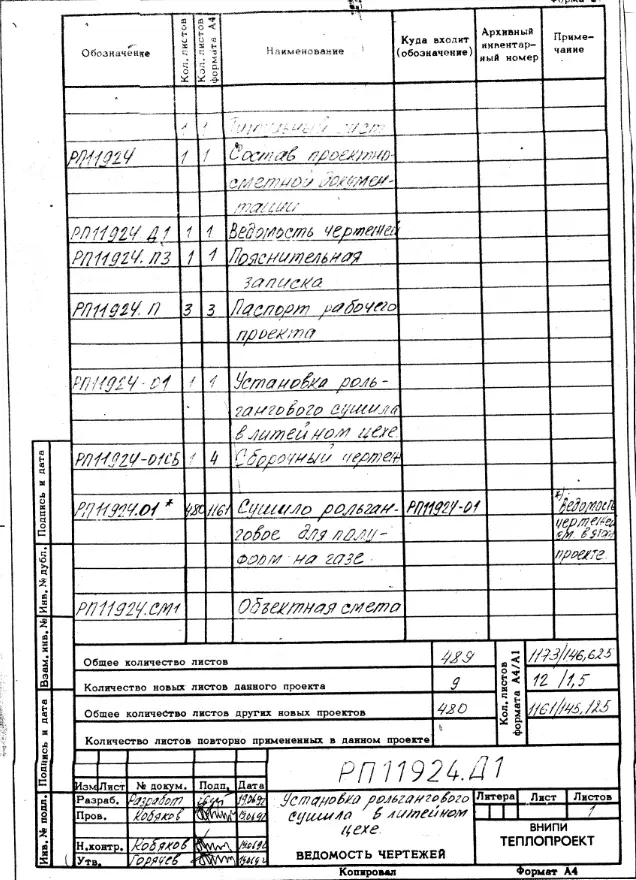 Обозначение
Кол. листов
Кол. листов формата А4
Наименование
Куда входит (обозначение)
Архивный инвентарный номер
Приме-чание
1 1 Титульный лист
РП11924 1 1 Состав проектно-
сметной докумен-
тации
РП11924 Д1 1 1 Ведомость чертежей
РП11924. ПЗ 1 1 Пояснительная
записка
РП11924. П 3 3 Паспорт рабочего
проекта
РП11924-01 1 1 Установка роль-
гангового сушила
в литейном цехе
РП11924-01СБ 1 4 Сборочный чертеж
РП11924.01 * 480 1161 Сушило рольган- РП11924-01 *) Ведомость
говое для полу- чертежей
форм на газе. см. в этом
проекте.
РП11924.СМ1 Объектная смета
Общее количество листов 489
Количество новых листов данного проекта 9
Общее количество листов других новых проектов 480
Количество листов повторно примененных в данном проекте
Кол. листов формата А4/А1
1173/146,625
12 /1,5
1161/145,125
Подпись и дата
Инв. № дубл.
Взам. инв. №
Подпись и дата
Инв. № подл.
РП11924.Д1
Изм Лист № докум. Подп. Дата
Разраб.
Пров. Кобяков
Н.контр. Кобяков
Утв. Горячев
Установка рольгангового
сушила в литейном
цехе.
ВЕДОМОСТЬ ЧЕРТЕЖЕЙ
Литера Лист Листов
1
ВНИПИ
ТЕПЛОПРОЕКТ
Копировал Формат А4